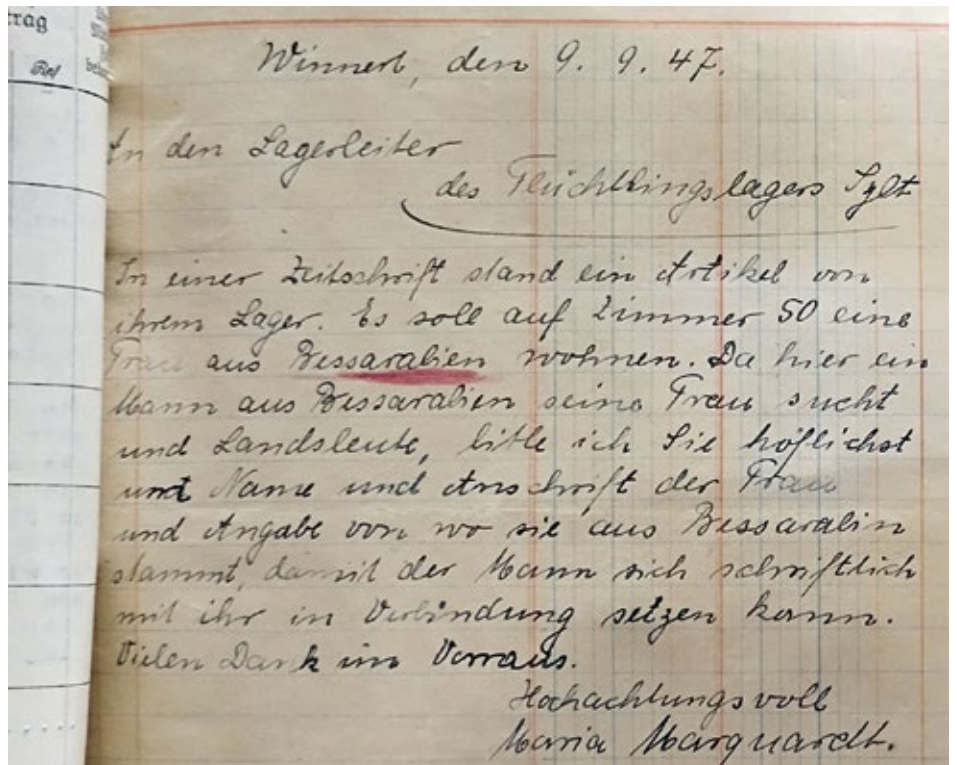 trag
Winnert, den 9. 9. 47.
An den Lagerleiter
des Flüchtlingslagers Sylt
In einer Zeitschrift stand ein Artikel von
ihrem Lager. Es soll auf Zimmer 50 eine
Frau aus Bessarabien wohnen. Da hier ein
Mann aus Bessarabien seine Frau sucht
und Landsleute, bitte ich Sie höflichst
umt Name und Anschrift der Frau
und Angabe von wo sie aus Bessarabin
stammt, damit der Mann sich schriftlich
mit ihr in Verbindung setzen kann.
Vielen Dank im Vorraus.
Hochachtungsvoll
Maria Marquardt.